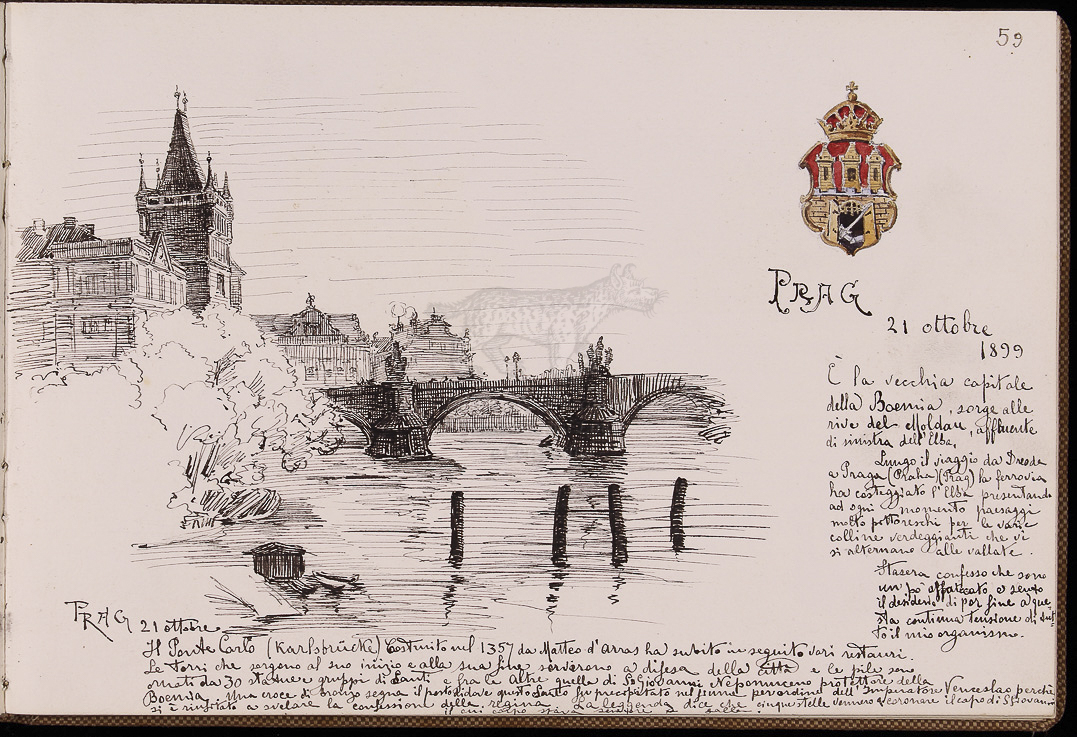 59
PRAG
21 ottobre
1899
È la vecchia capitale
della Boemia, sorge alle
rive del Moldau, affluente
di sinistra dell'Elba.
Lungo il viaggio da Dresda
a Praga (Praha) (Prag) la ferrovia
ha costeggiato l'Elba presentando
ad ogni momento paesaggi
molto pittoreschi per le varie
colline verdeggianti che vi
si alternano alle vallate.
Stasera confesso che sono
un po' affaticato e sento
il desiderio di por fine a que
sta continua tensione di tut
to il mio organismo.
PRAG 21 ottobre.
Il Ponte Carlo (Karlsbrücke) Costruito nel 1357 da Matteo d'Arras ha subito in seguito vari restauri.
Le torri che sorgono al suo inizio e alla sua fine servirono a difesa della città e le pile sono
ornati da 30 statue e gruppi di Santi e fra le altre quella di S. Giovanni Nepomuceno protettore della
Boemia. Una croce di bronzo segna il posto di dove questo Santo fu precipitato nel fiume per ordine dell'Imperatore Venceslao perchè
si è rifiutato a svelare la confessione della regina. La leggenda dice che cinque stelle vennero a coronare il capo di S. Giovanni
il cui corpo stava sempre a galla.